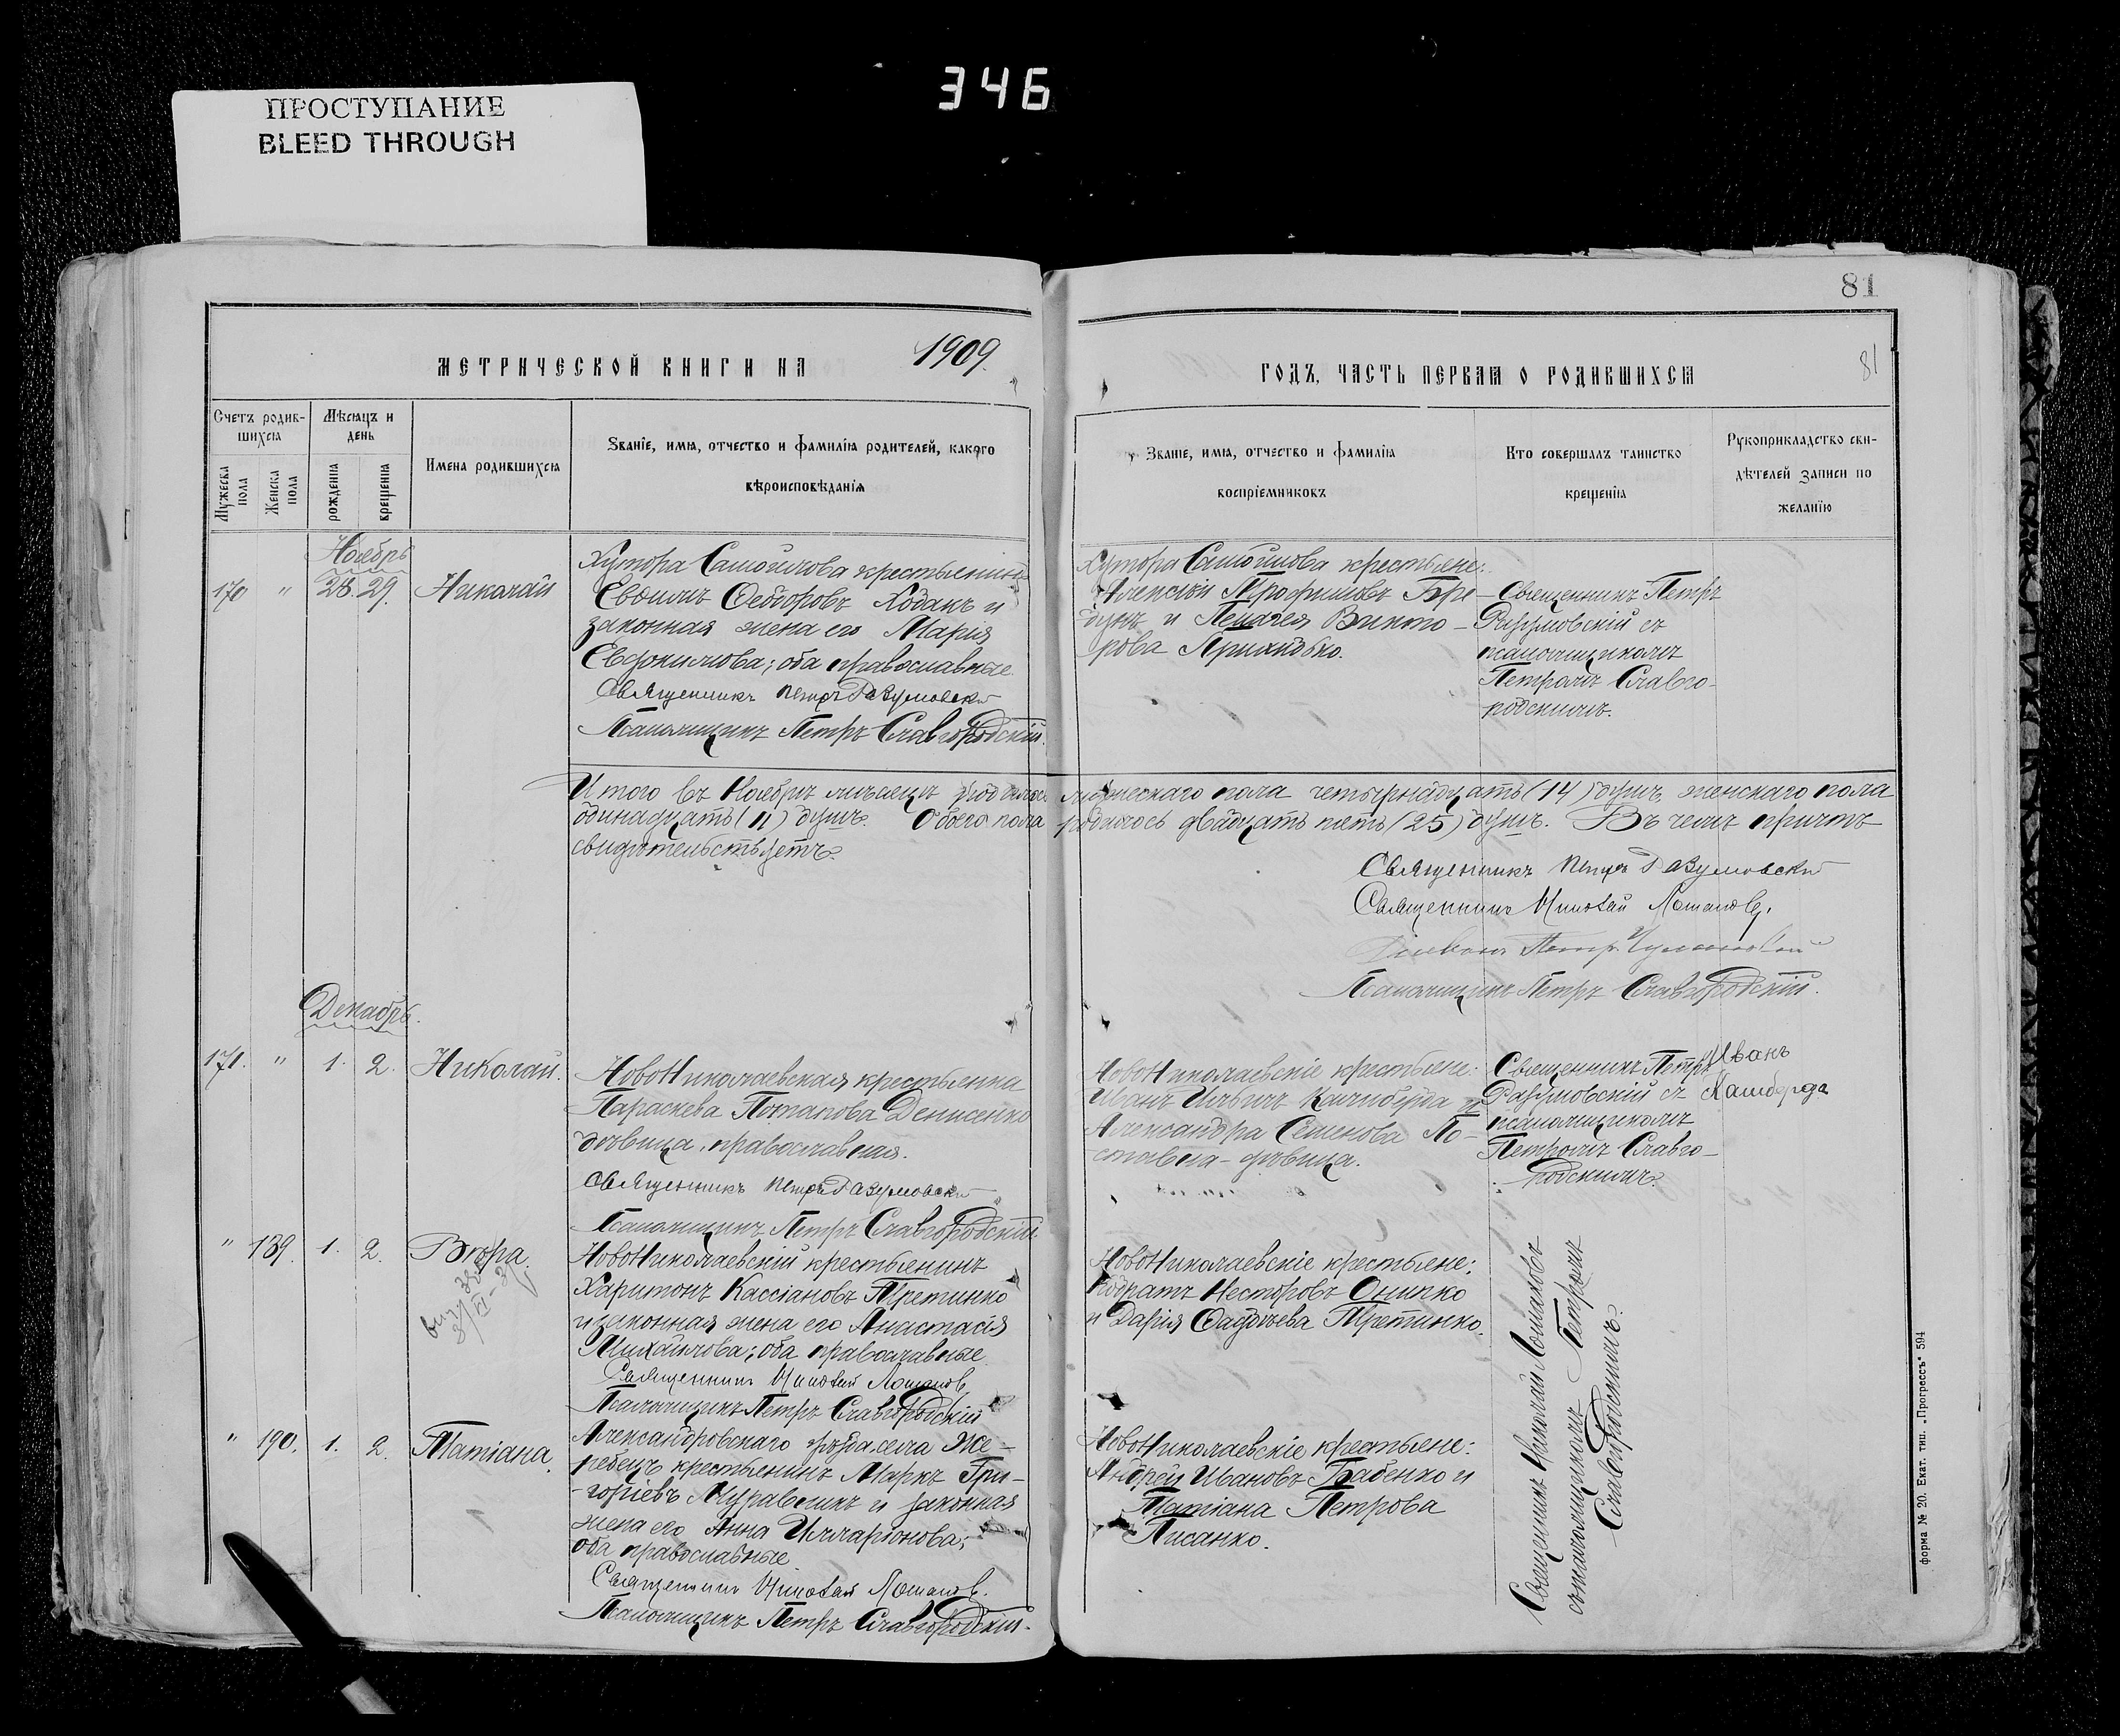 346
ПРОСТУПАНИЕ
BLEED THROUGH
81
81
МЕТРИЧЕСКОЙ КНИГИ НА 1909 ГОДЪ, ЧАСТЬ ПЕРВАЯ О РОДИВШИХСЯ
Счетъ родив-
шихся
Мужеска пола
Женска пола
Мѣсяцъ и
день
рожденія
крещенія
Имена родившихся
Званіе, имя, отчество и фамилія родителей, какого
вѣроисповѣданія
Званіе, имя, отчество и фамилія
воспріемниковъ
Кто совершалъ таинство
крещенія
Рукоприкладство сви-
дѣтелей записи по
желанію
Ноябрь
170 " 28. 29. Николай
Хутора Самойлова крестьянинъ
Евфимъ Ѳеодоровъ Ходакъ и
законная жена его Марія
Евдокимова; оба православные.
Священникъ Петръ Разумовскій
Псаломщикъ Петръ Славгородскій.
Хутора Самойлова крестьяне:
Алексій Трофимовъ Бре-
дунъ и Пелагея Викто-
рова Прихидько.
Священникъ Петръ
Разумовскій съ
псаломщикомъ
Петромъ Славго-
родскимъ.
Итого въ Ноябрѣ мѣсяцѣ родилось мужескаго пола четырнадцать (14) душъ, женскаго пола
одинадцать (11) душъ. Обоего пола родилось двадцать пять (25) душъ. Въ чемъ причтъ
свидѣтельствуетъ.
Священникъ Петръ Разумовскій
Священникъ Николай Лошаковъ.
Діаконъ Петръ
Псаломщикъ Петръ Славгородскій.
Декабрь.
171. " 1. 2. Николай.
НовоНиколаевская крестьянка
Параскева Потапова Денисенко
дѣвица, православная.
Священникъ Петръ Разумовскій
Псаломщикъ Петръ Славгородскій.
НовоНиколаевскіе крестьяне:
Иванъ Ильичъ Кашиберда и
Александра Семенова По-
ставна - дѣвица.
Священникъ Петръ
Разумовскій съ
псаломщикомъ
Петромъ Славго-
родскимъ.
Иванъ
Кашберда
" 139. 1. 2. Вѣра.
НовоНиколаевскій крестьянинъ
Харитонъ Кассіановъ Третинко
и законная жена его Анастасія
Михайлова; оба православные.
Священникъ Николай Лошаковъ
Псаломщикъ Петръ Славгородскій
НовоНиколаевскіе крестьяне:
Кодратъ Несторовъ Онипко
и Дарія Фадѣева Третинко.
Священникъ Николай Лошаковъ
съ псаломщикомъ Петромъ
Славгородскимъ.
" 190. 1. 2. Татіана.
Александровскаго уѣзда села Же-
ребецъ крестьянинъ Маркъ Гри-
горіевъ Муравликъ и законная
жена его Анна Илларіонова;
оба православные
Священникъ Николай Лошаковъ.
Псаломщикъ Петръ Славгородскій.
НовоНиколаевскіе крестьяне:
Андрей Ивановъ Бабенко и
Татіана Петрова
Писанко.
форма № 20. Екат. тип. „Прогрессъ" 594